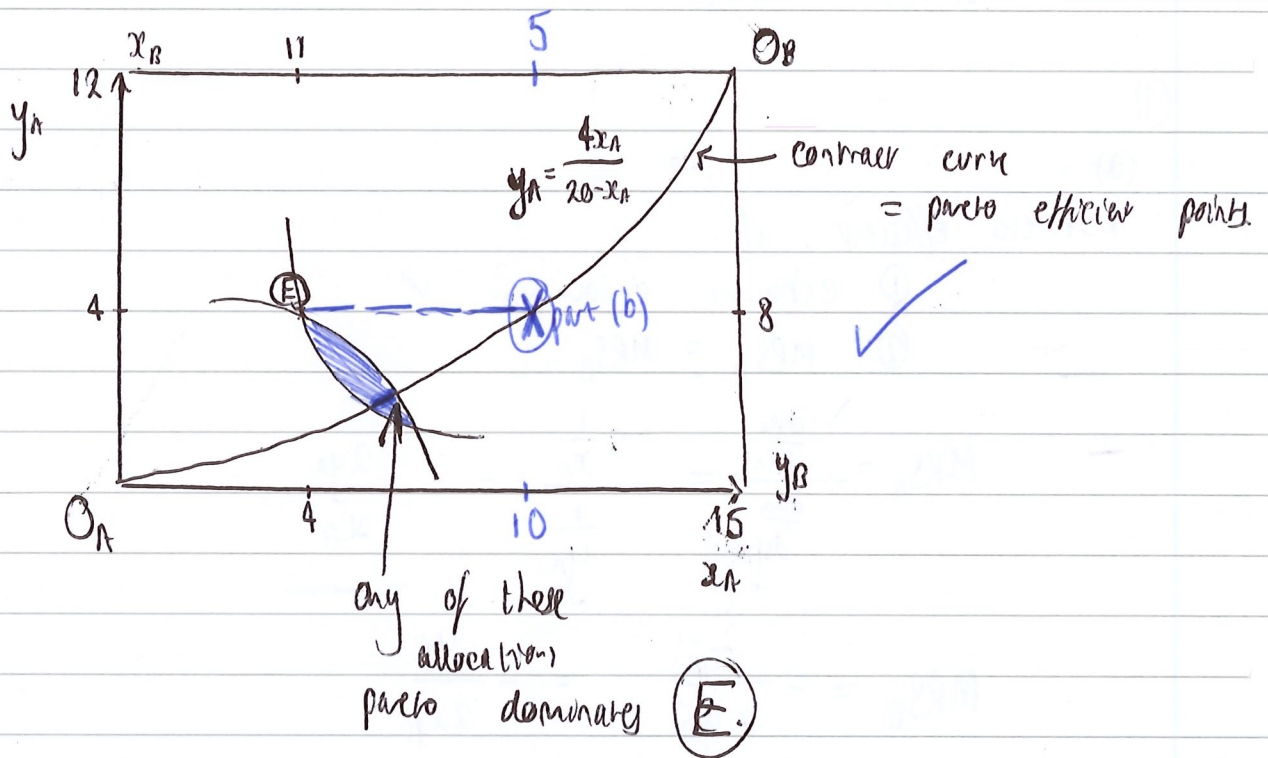 5
x_B 11 O_B
12
y_A
y_A = 4x_A / 20-x_A
contract curve
= pareto efficient points.
E
4 X part (b) 8
y_B
O_A 4 10 15
x_A
any of these
allocations
pareto dominates E.